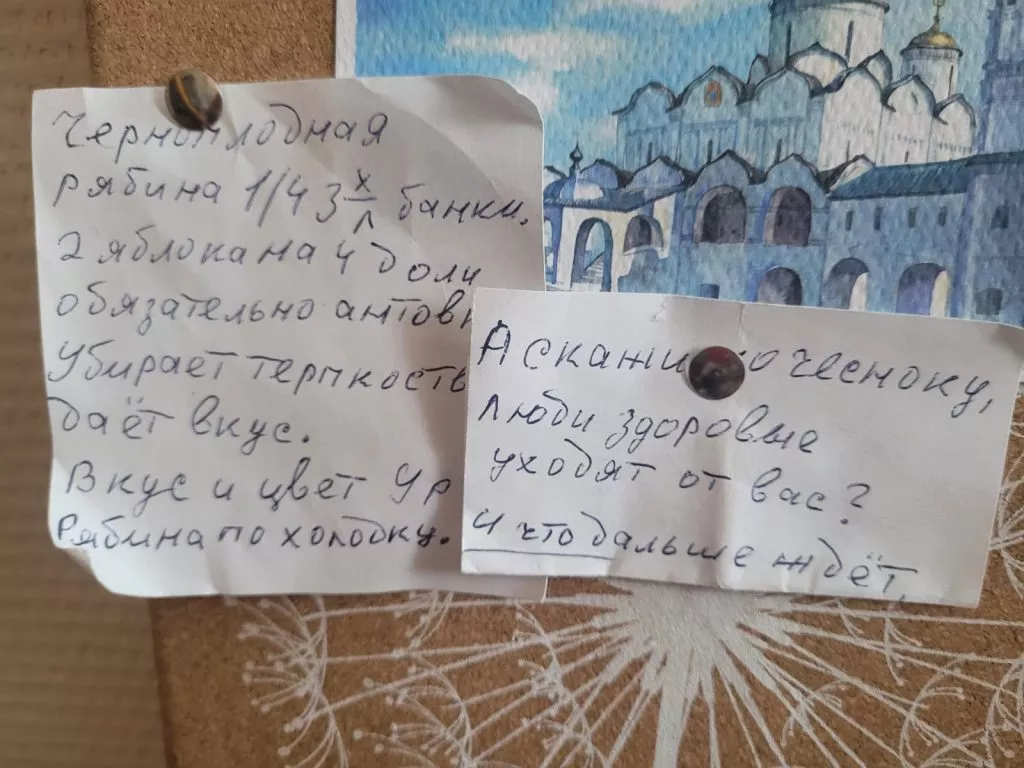 Черноплодная
рябина 1/4 3х/л банки.
2 яблока на 4 доли
обязательно антовк
Убирает терпкость
даёт вкус.
Вкус и цвет Ур
Рябина по холодку.
А скажи чесноку,
люди здоровые
уходят от вас?
и что дальше ждёт,